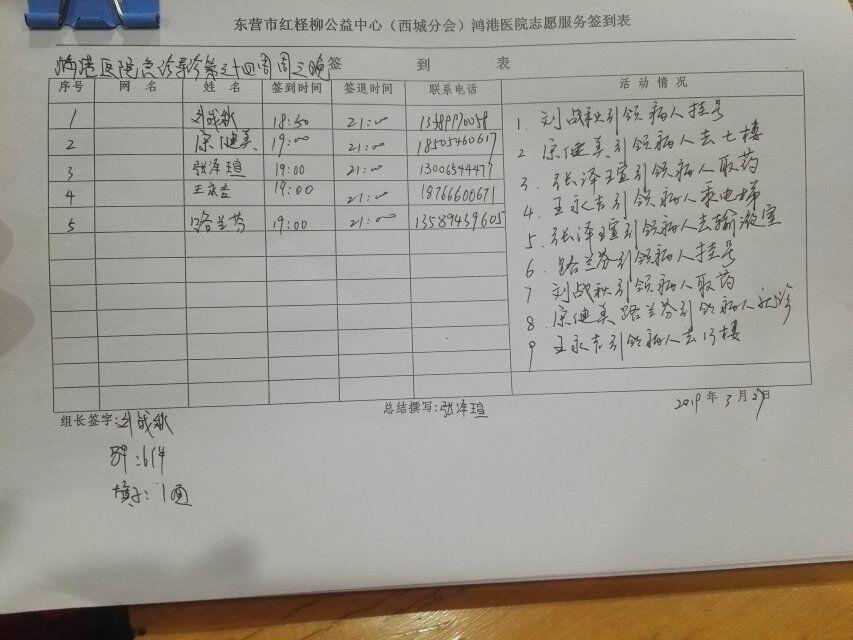 东营市红柽柳公益中心（西城分会）鸿港医院志愿服务签到表
鸿港医院急诊导诊第三十四周周三晚签 到 表
序号 网 名 姓 名 签到时间 签退时间 联系电话 活 动 情 况
1 刘战秋 18:50 21:00
2 宗健美 19:00 21:00 18505460617
3 张泽瑄 19:00 21:00 13006544477
4 王永吉 19:00 21:00 18766600671
5 路兰芬 19:00 21:00 13589459605
1. 刘战秋引领病人挂号
2 宗健美引领病人去七楼
3. 张泽瑄引领病人取药
4. 王永吉引领病人乘电梯
5. 张泽瑄引领病人去输液室
6. 路兰芬引领病人挂号
7 刘战秋引领病人取药
8. 宗健美路兰芬引领病人就诊
9 王永吉引领病人去13楼
组长签字:刘战秋 总结撰写:张泽瑄 2019 年 3 月 27日
:614
:1通